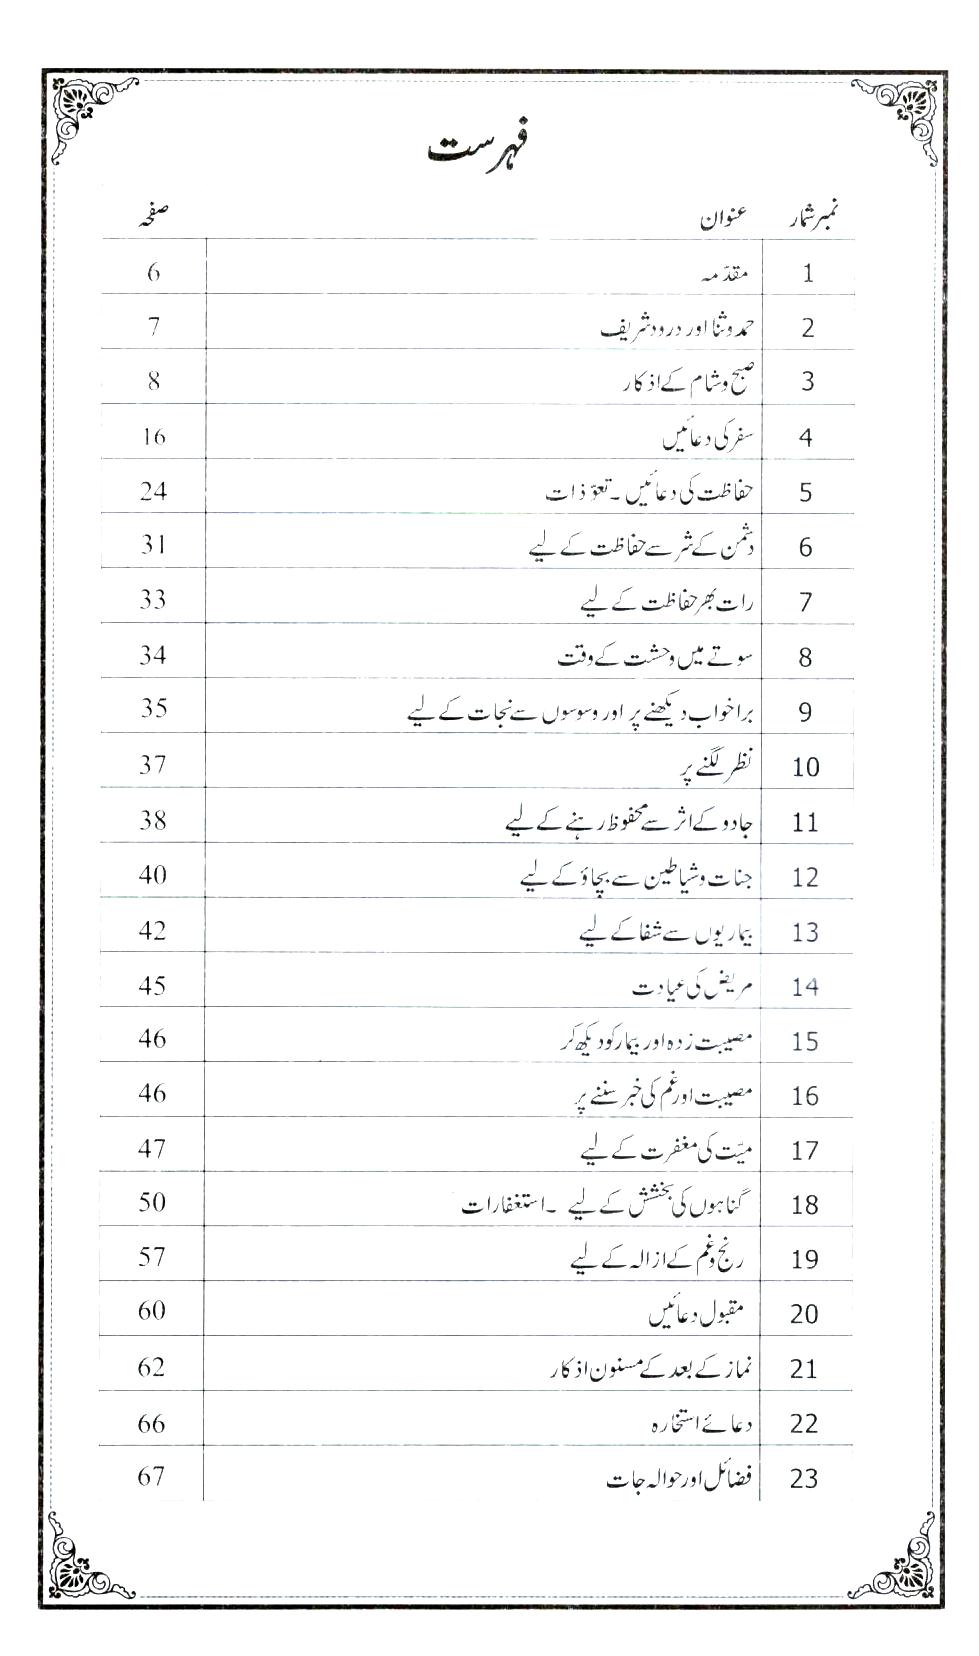 فہرست
نمبرشمار عنوان صفحہ
1 مقدّمہ 6
2 حمدوثنا اور درودشریف 7
3 صبح وشام کے اذکار 8
4 سفر کی دعائیں 16
5 حفاظت کی دعائیں ۔ تعوّذات 24
6 دشمن کے شر سے حفاظت کے لیے 31
7 رات بھر حفاظت کے لیے 33
8 سوتے میں وحشت کے وقت 34
9 برا خواب دیکھنے پر اور وسوسوں سے نجات کے لیے 35
10 نظر لگنے پر 37
11 جادو کے اثر سے محفوظ رہنے کے لیے 38
12 جنات وشیاطین سے بچاؤ کے لیے 40
13 بیماریوں سے شفا کے لیے 42
14 مریض کی عیادت 45
15 مصیبت زدہ اور بیمار کو دیکھ کر 46
16 مصیبت اور غم کی خبر سننے پر 46
17 میّت کی مغفرت کے لیے 47
18 گناہوں کی بخشش کے لیے ۔ استغفارات 50
19 رنج وغم کے ازالہ کے لیے 57
20 مقبول دعائیں 60
21 نماز کے بعد کے مسنون اذکار 62
22 دعائے استخارہ 66
23 فضائل اور حوالہ جات 67